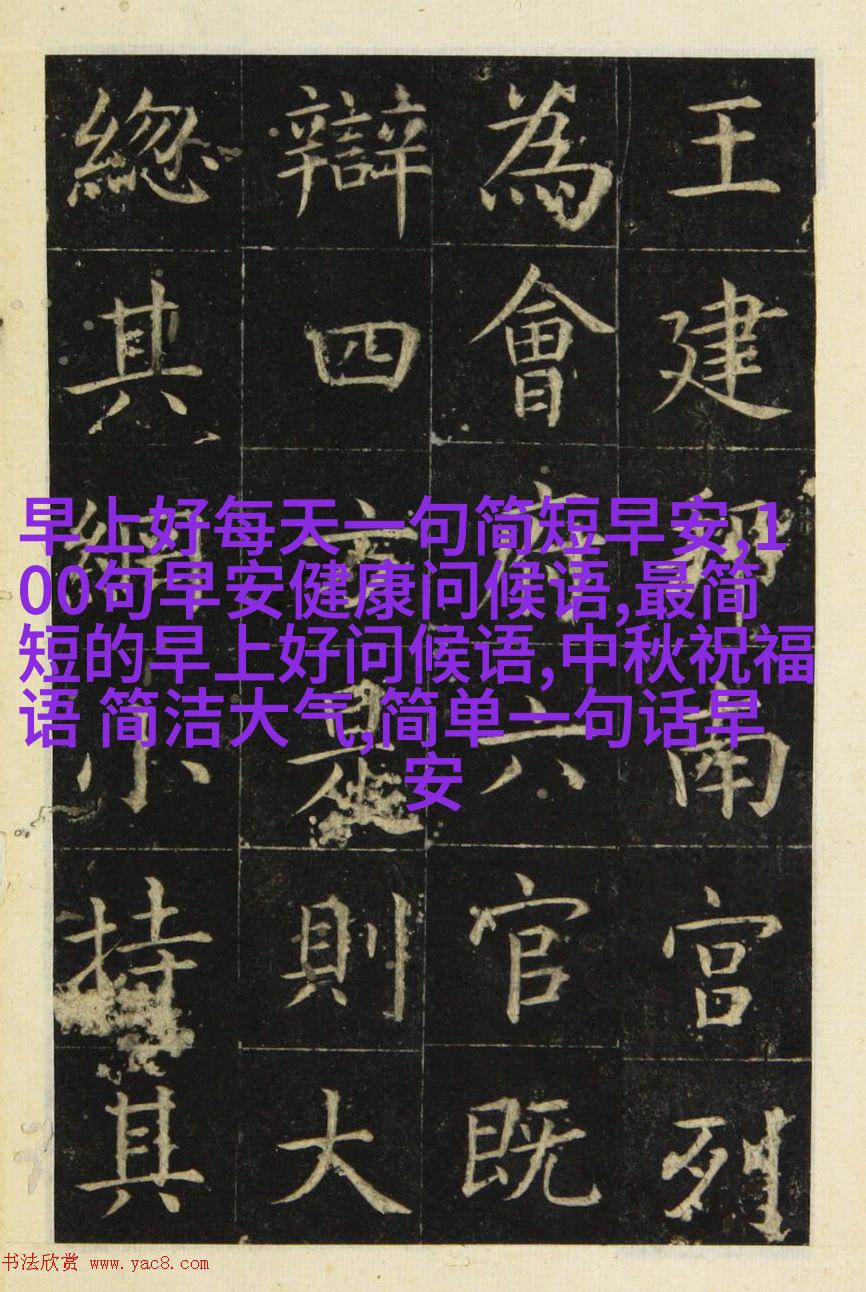 王建邦南宫列
為會府六官既
辯四方是則大
總其綱小持其
早上好每天一句简短早安,1
00句早安健康问候语,最简
短的早上好问候语,中秋祝福
语 简洁大气,简单一句话早
安
书法欣赏 www.yac8.com